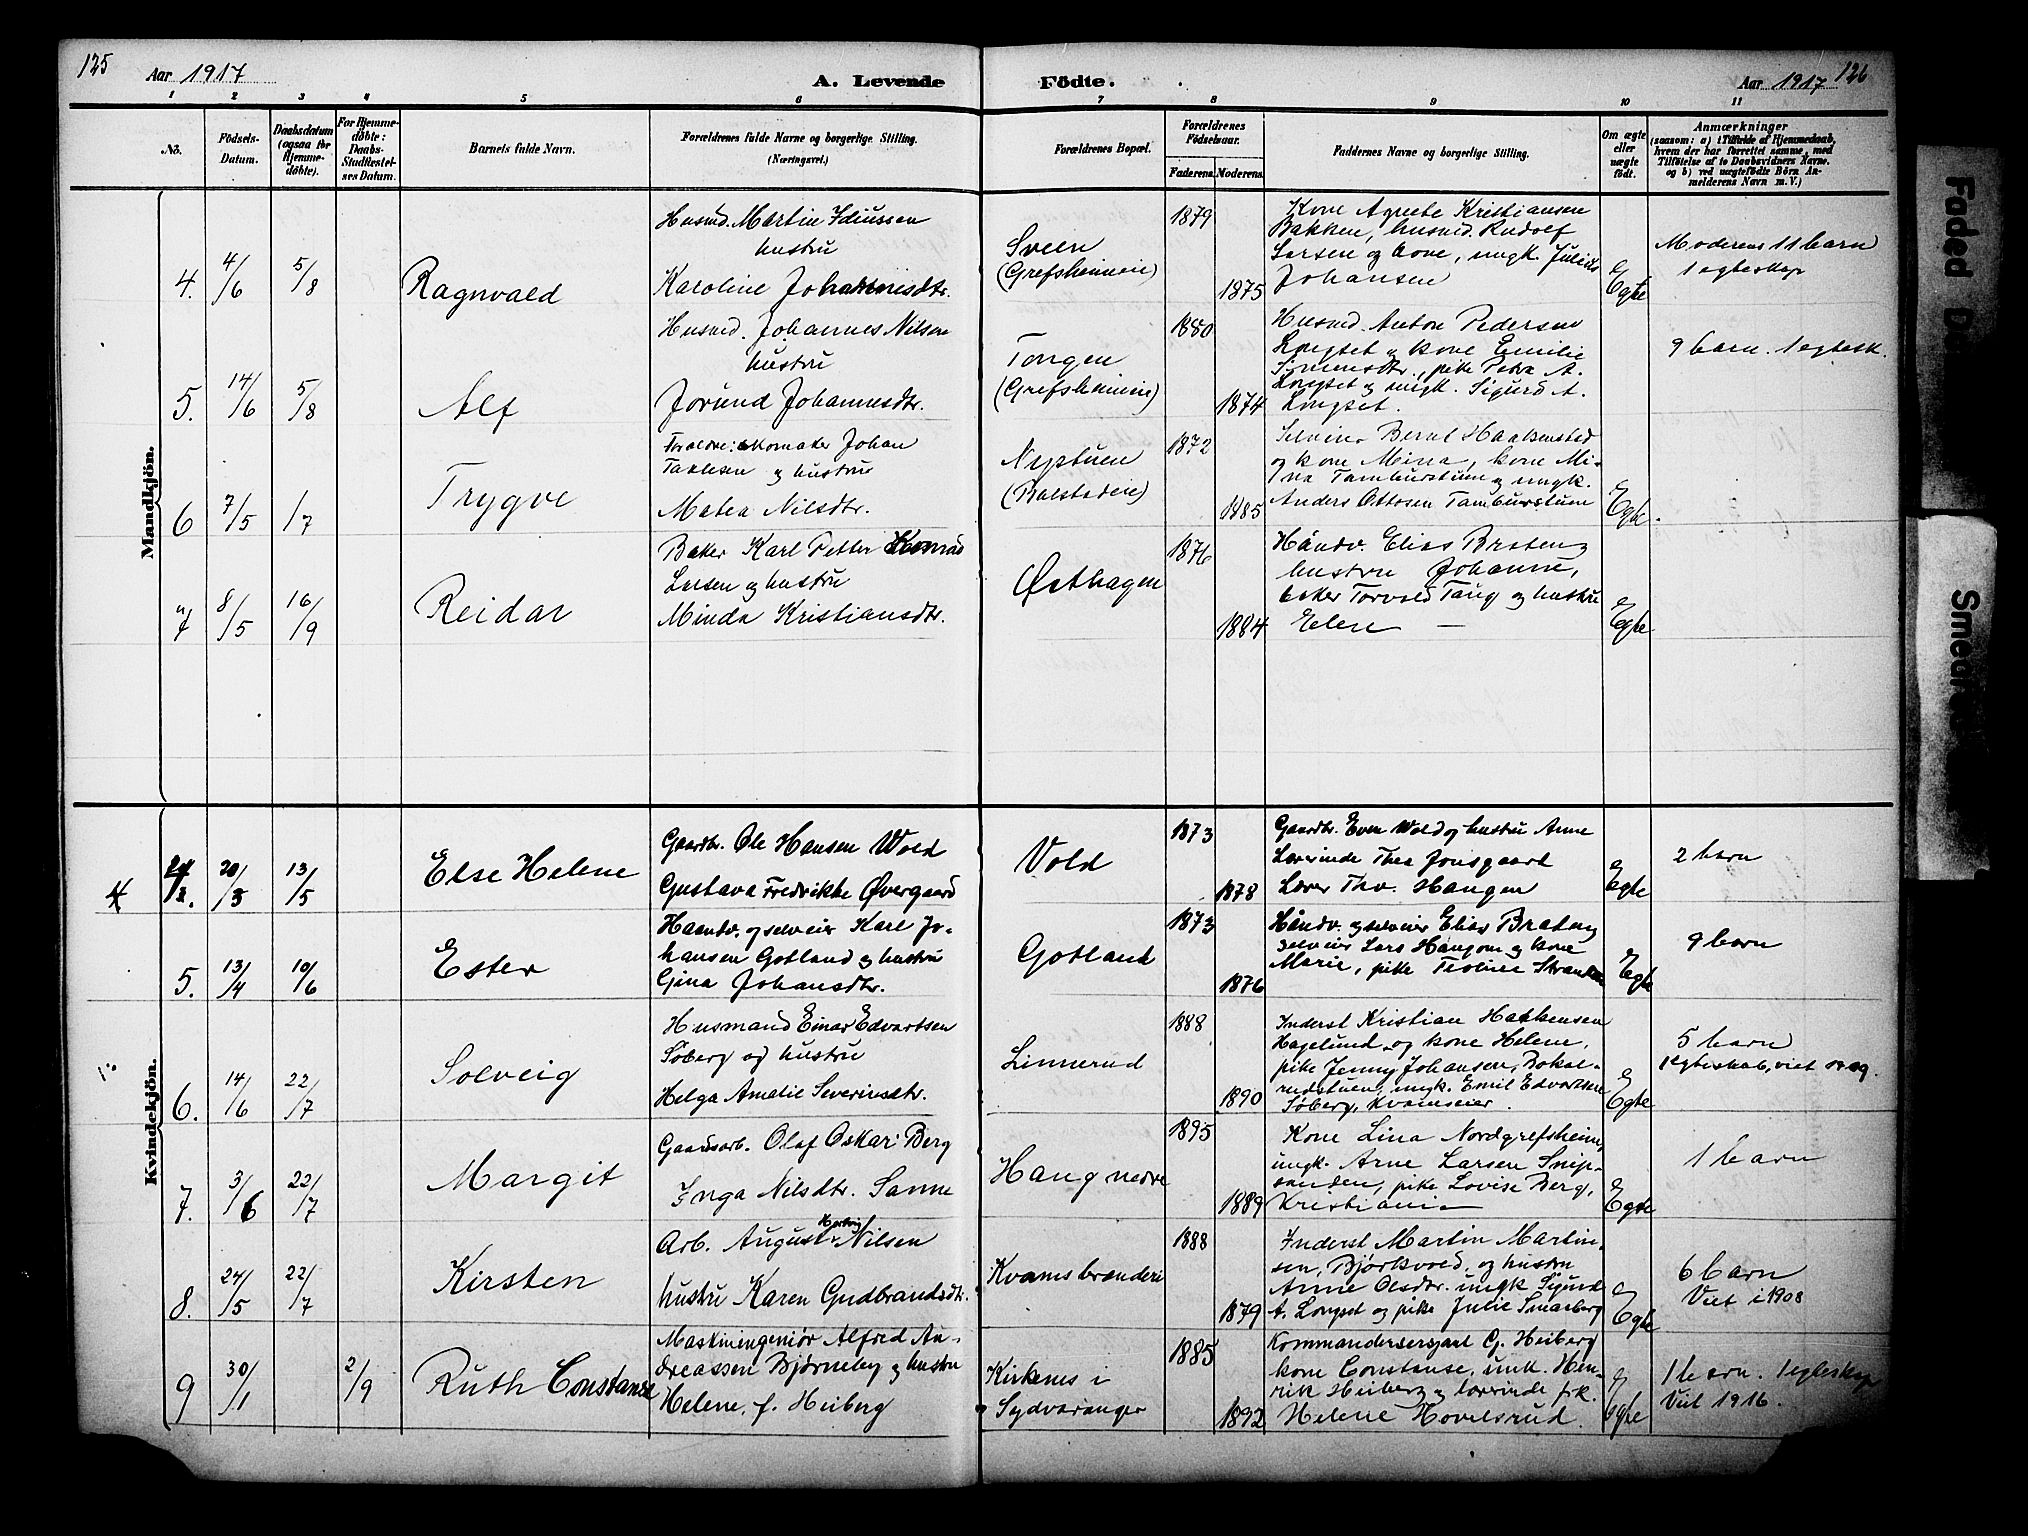 125 Aar 1917 A. Levende Födte. Aar 1917 126
1 2 3 4 5 6 7 8 9 10 11
No.
Födsels-
Datum.
Daabsdatum
(ogsaa for
Hjemme-
døbte).
For Hjemme-
døbte:
Daabs-
Stadfæstel-
ses Datum.
Barnets fulde Navn.
Forældrenes fulde Navne og borgerlige Stilling.
(Næringsvei.)
Forældrenes Bopæl.
Forældrenes
Fødselsaar.
Faderens. Moderens.
Faddernes Navne og borgerlige Stilling.
Om ægte
eller
uægte
født.
Anmærkninger
(saasom: a) i Tilfælde af Hjemmedaab,
hvem der har forrettet samme, med
Tilføielse af to Daabsvidners Navne,
og b) ved uægtefødte Børn An-
melderens Navn m. V.)
Mandkjön.
4. 4/6 5/8
Ragnvald
Husmd. Martin
hustru
Karoline Johannesdtr.
Sveen
(Grefsheimeie)
1879
1875
Kone Agnete Kristiansen
Bakken, husmd. Rudolf
Larsen og kone, ungk. Julius
Johansen
Egte
Moderens 11 barn
1 egteskap
5. 14/6 5/8
Alf
Husmd. Johannes Nilsen
hustru
Jorund Johannesdtr.
Tongen
(Grefsheimeie)
1880
1874
Husmd. Anton Pedersen
Longset og kone Emilie
Simensdtr., pike Petra A.
Longset og ungk. Sigurd A.
Longset.
9 barn. 1 egtesk.
6 7/5 1/7
Trygve
Forældre: skomaker Johan
og hustru
Matea Nilsdtr.
Nyptuen
(Balstadeie)
1872
1885
Selveier Bernt Haakenstad
og kone Mina, kone Mi-
na Tamburstuen og ungk.
Anders Ottosen Tamburstuen
Egte.
7 8/5 16/9
Reidar
Baker Karl Petter Konrad
Larsen og hustru
Minda Kristiansdtr.
Østhagen
1876
1884
Håndv. Elias Braten og
hustru Johanne,
baker Torvald Taug og hustru
Elen —
Egte
Kvindekjön.
4 20/3 13/5
Else Helene
Gaardbr. Ole Hansen Wold
Gustava Fredrikke Øvergaard
Vold
1873
1878
Gaardbr. Even Wold og hustru Anne
Lærerinde Thea Jonsgaard
Lærer Thv. Haugen
Egte
2 barn
5. 13/4 10/6
Ester
Haandv. og selveier Karl Jo-
hansen Gotland og hustru
Gina Johansdtr.
Gotland
1873
1876
Håndv. og selveier Elias Braten og
selveier Lars Haugom og kone
Marie, pike Teoline
Egte
9 barn
6. 14/6 22/7
Solveig
Husmand Einar Edvartsen
Søberg og hustru
Helga Amalie Severinsdtr.
Linnerud
1888
1890
Inderst Kristian Haakensen
Hagelund og kone Helene,
pike Jenny Johansen,
ungk. Emil Edvartsen
Søberg, Kvamseier.
Egte
5 barn
1 egteskab, viet 1909.
7. 3/6 22/7
Margit
Gaardsarb. Olaf Oskar Berg
Inga Nilsdtr. Sanne
Haug nedre
1895
1889
Kone Lina Nordgrefsheim,
ungk. Arne Larsen Snip-
sanden, pike Lovise Berg,
Kristiania
Egte
1 barn
8. 24/5 22/7
Kirsten
Arb. August Hartvig Nilsen
hustru Karen Gudbrandsdtr.
Kvamsbrænderi
1888
1879
Inderst Martin Martin-
sen, Bjørkvold, og hustru
Anne Olsdtr. ungk Sigurd
A. Longset og pike Julie Smaaberg
Egte
6 barn
Viet i 1908
9 30/1 2/9
Ruth Constanse
Maskiningeniør Alfred An-
dreassen Bjørneby og hustru
Helene, f. Heiberg
Kirkenes i
Sydvaranger
1885
1892
Kommandersersjant G. Heiberg
kone Constanse, unk. Hen-
rik Heiberg og lærerinde frk.
Helene Hovelsrud.
Egte
1 barn. 1 egteskap
Viet 1916.
Faded
Smea